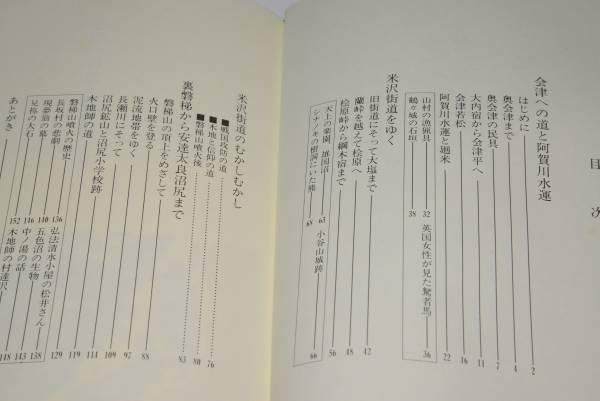 目次
会津への道と阿賀川水運
はじめに 2
奥会津まで 4
奥会津の民具 7
大内宿から会津平へ 11
会津若松 16
阿賀川水運と廻米 22
山村の漁猟具 32
英国女性が見た駑者馬 36
鶴ヶ城の石垣 38
米沢街道をゆく
旧街道にそって大塩まで 42
蘭峠を越えて桧原へ 48
桧原峠から綱木宿まで 56
天上の楽園、雄国沼 63
小谷山城跡 66
シナノキの樹洞にいた熊 68
米沢街道のむかしむかし
■戦国攻防の道 76
■木地と信仰の道 80
■磐梯山噴火後 83
裏磐梯から安達太良沼尻まで
磐梯山の頂上をめざして 88
火口壁を登る 97
泥流地帯をゆく 109
長瀬川にそって 114
沼尻鉱山と沼尻小学校跡 119
木地師の道 129
磐梯山噴火の歴史 136
弘法清水小屋の松井さん 138
長坂村の悲劇 140
五色沼の生物 143
現夢翁の墓 146
中ノ湯の話 148
見祢の大石 152
木地師の村達沢
あとがき